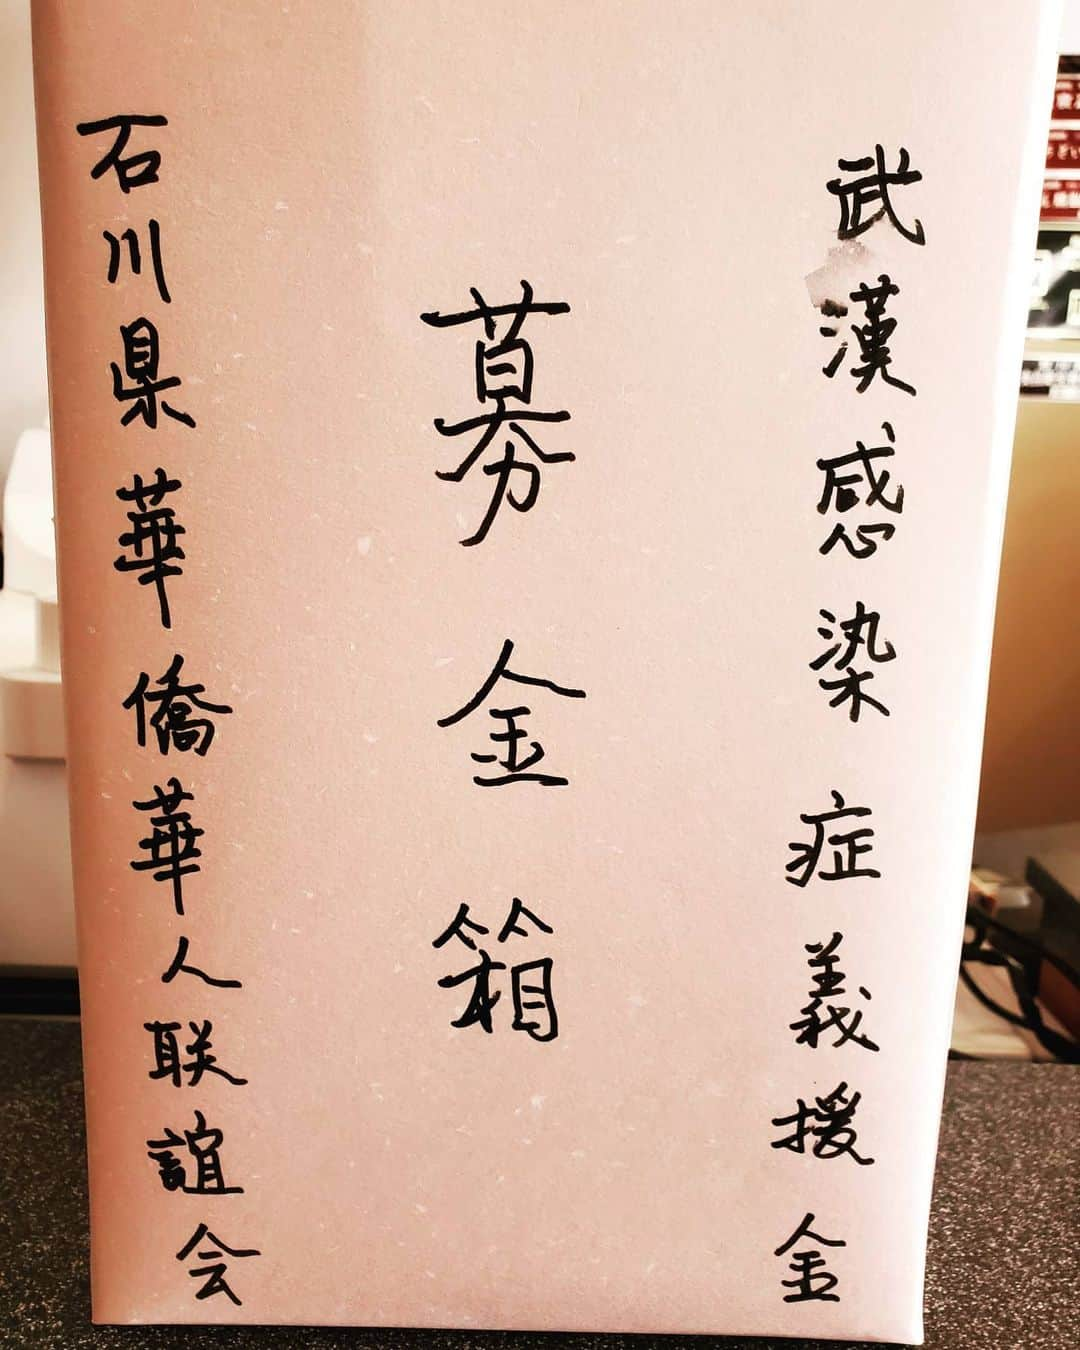 武漢感染症義援金
募金箱
石川県華僑華人联誼会